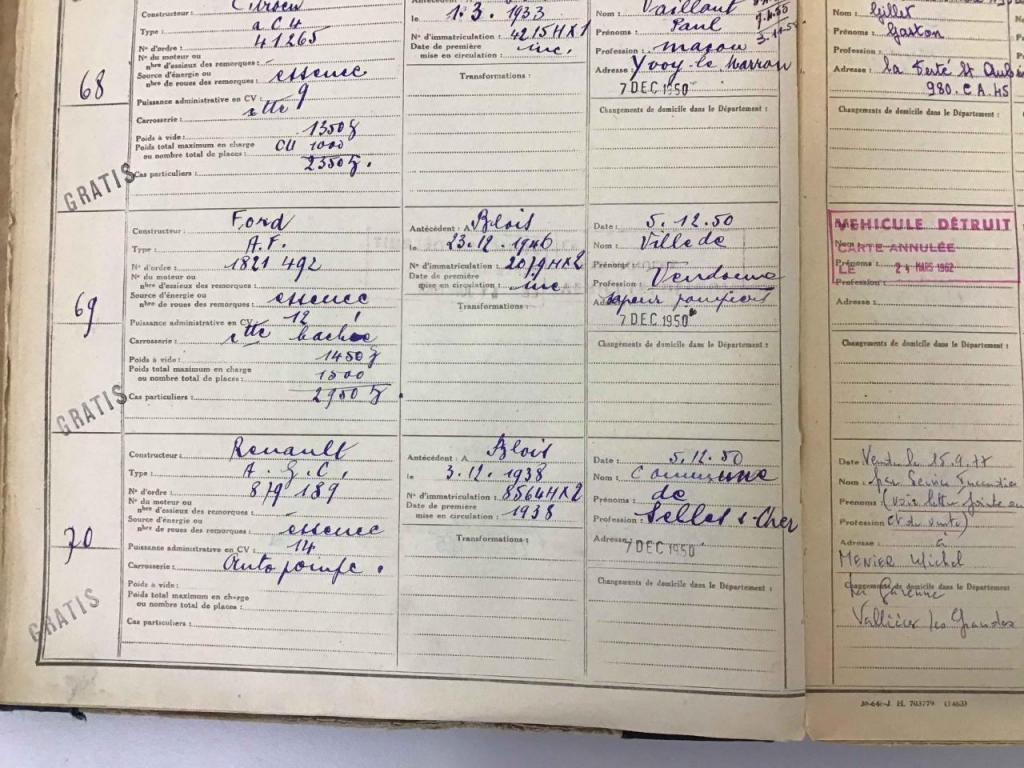 68
GRATIS
Constructeur : Citroën
Type : a C4
N° d'ordre : 41265
N° du moteur ou
nbre d'essieux des remorques :
Source d'énergie ou
nbre de roues des remorques : essence
Puissance administrative en CV : 9
Carrosserie : ctte
Poids à vide : 1350 K
Poids total maximum en charge CU 1000
ou nombre total de places : 2350 K.
Cas particuliers :
le 1.3.1933
N° d'immatriculation : 4215HX1
Date de première
mise en circulation : inc.
Transformations :
Nom : Vaillant
Prénoms : Paul
Profession : maçon
Adresse : Yvoy-le-Marron
7 DEC 1950
Changements de domicile dans le Département :
Nom : Gillet
Prénoms : Gaston
Profession :
Adresse : la Ferté St Aub
980.CA.45
Changements de domicile dans le Département :
69
GRATIS
Constructeur : Ford
Type : A.F.
N° d'ordre : 1821 492
N° du moteur ou
nbre d'essieux des remorques :
Source d'énergie ou
nbre de roues des remorques : essence
Puissance administrative en CV : 12
Carrosserie : ctte bachée
Poids à vide : 1450 K
Poids total maximum en charge 1500
ou nombre total de places : 2950 K.
Cas particuliers :
Antécédent : A Blois
le 23.12.1946
N° d'immatriculation : 2079HX2
Date de première
mise en circulation : inc
Transformations :
Date : 5.12.50
Nom : Ville de
Prénoms :
Profession : Vendôme
Adresse sapeurs pompiers
7 DEC 1950
Changements de domicile dans le Département :
VEHICULE DÉTRUIT
CARTE ANNULÉE
LE 24 MARS 1962
Nom :
Prénoms :
Profession :
Adresse :
Changements de domicile dans le Département :
70
GRATIS
Constructeur : Renault
Type : A.G.C.
N° d'ordre : 879 189
N° du moteur ou
nbre d'essieux des remorques :
Source d'énergie ou
nbre de roues des remorques : essence
Puissance administrative en CV : 14
Carrosserie : Auto pompe.
Poids à vide :
Poids total maximum en charge
ou nombre total de places :
Cas particuliers :
Antécédent : A Blois
le 3.12.1938
N° d'immatriculation : 8564HX2
Date de première
mise en circulation : 1938
Transformations :
Date : 5.12.50
Nom : Commune
Prénoms : de
Profession : Selles s-Cher
Adresse :
7 DEC 1950
Changements de domicile dans le Département :
Date Vendu le 15.9.77
Nom : par Service Incendie
Prénoms (voir lettre jointe
Profession et du vente)
Adresse : à
MENIER Michel
Changements de domicile dans le Département
Vallières les Grandes
39-64c-J. H. 703779 (1463)